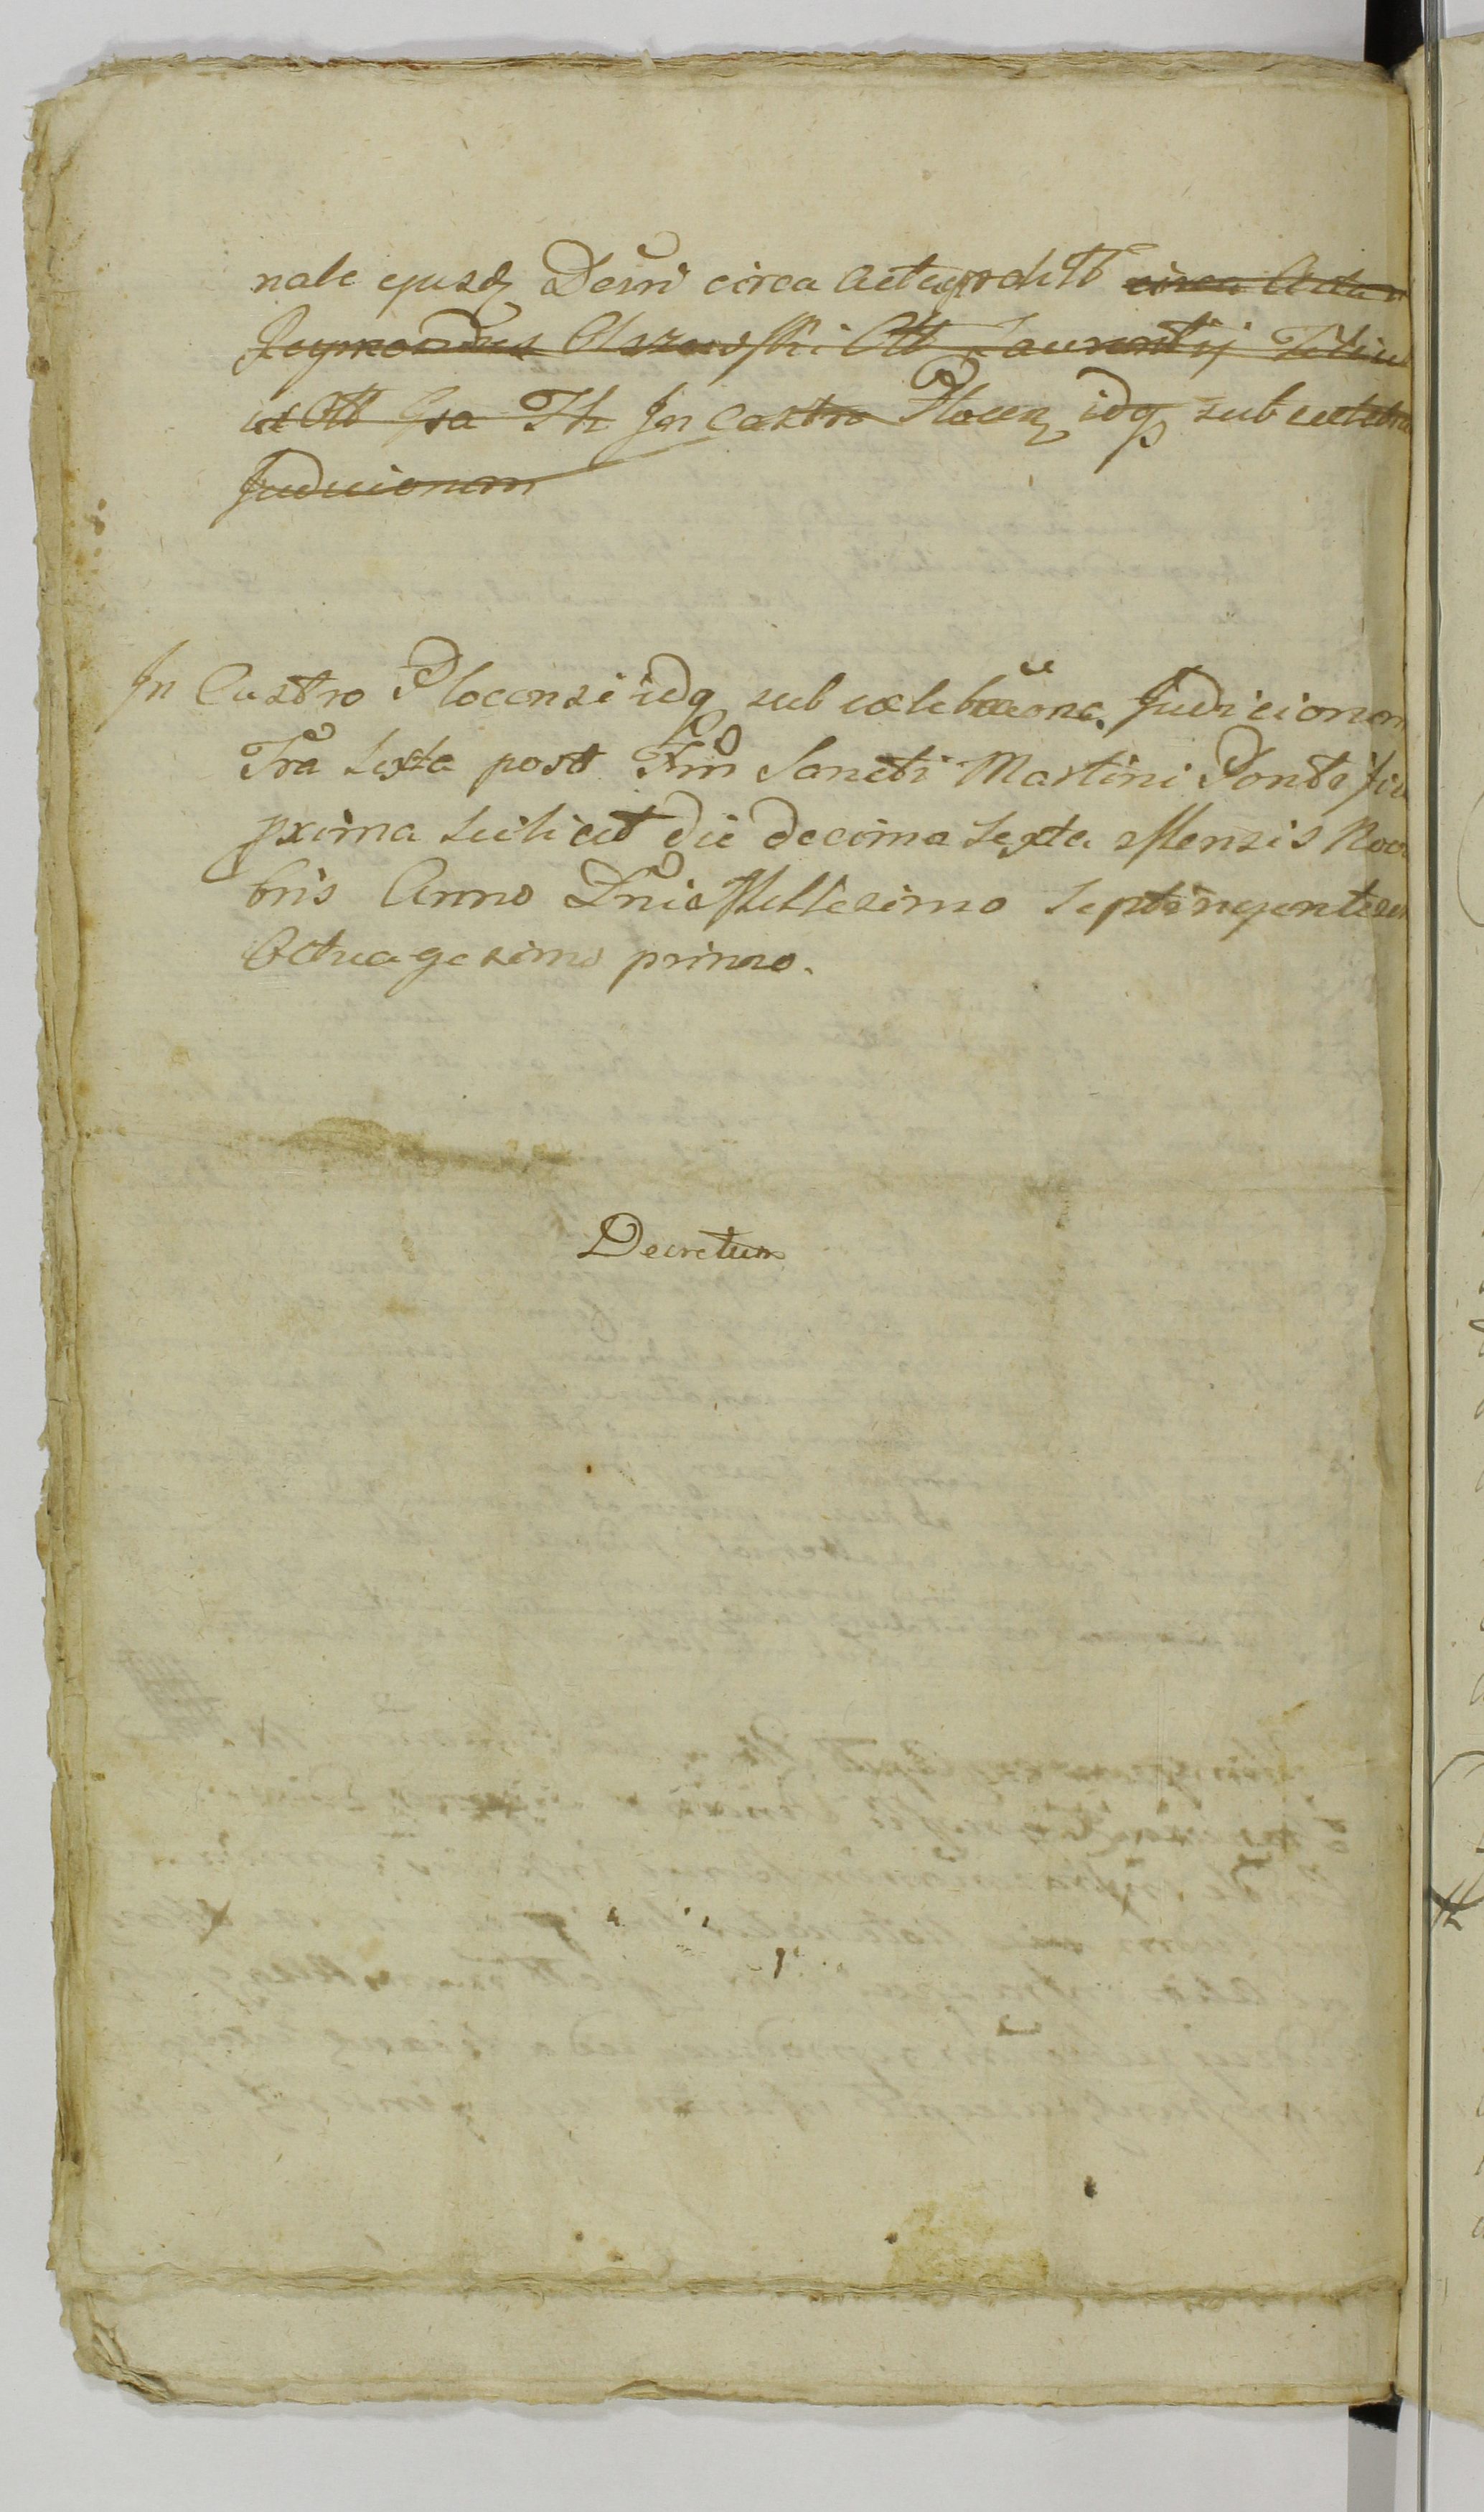 nale ejusd Decri circa Actu
Olszewski Laurentij
In Castro Plocen idq sub celebra
Judicionem
In Castro Plocensi idq sub celebraone Judicionem
Fra Sexta post Fm Sancti Martini Pontifi
pxima scilicet die decima sexta Mensis Nov
bris Anno Dni Millesimo Septingentesi
Octuagesimo primo.
Decretum